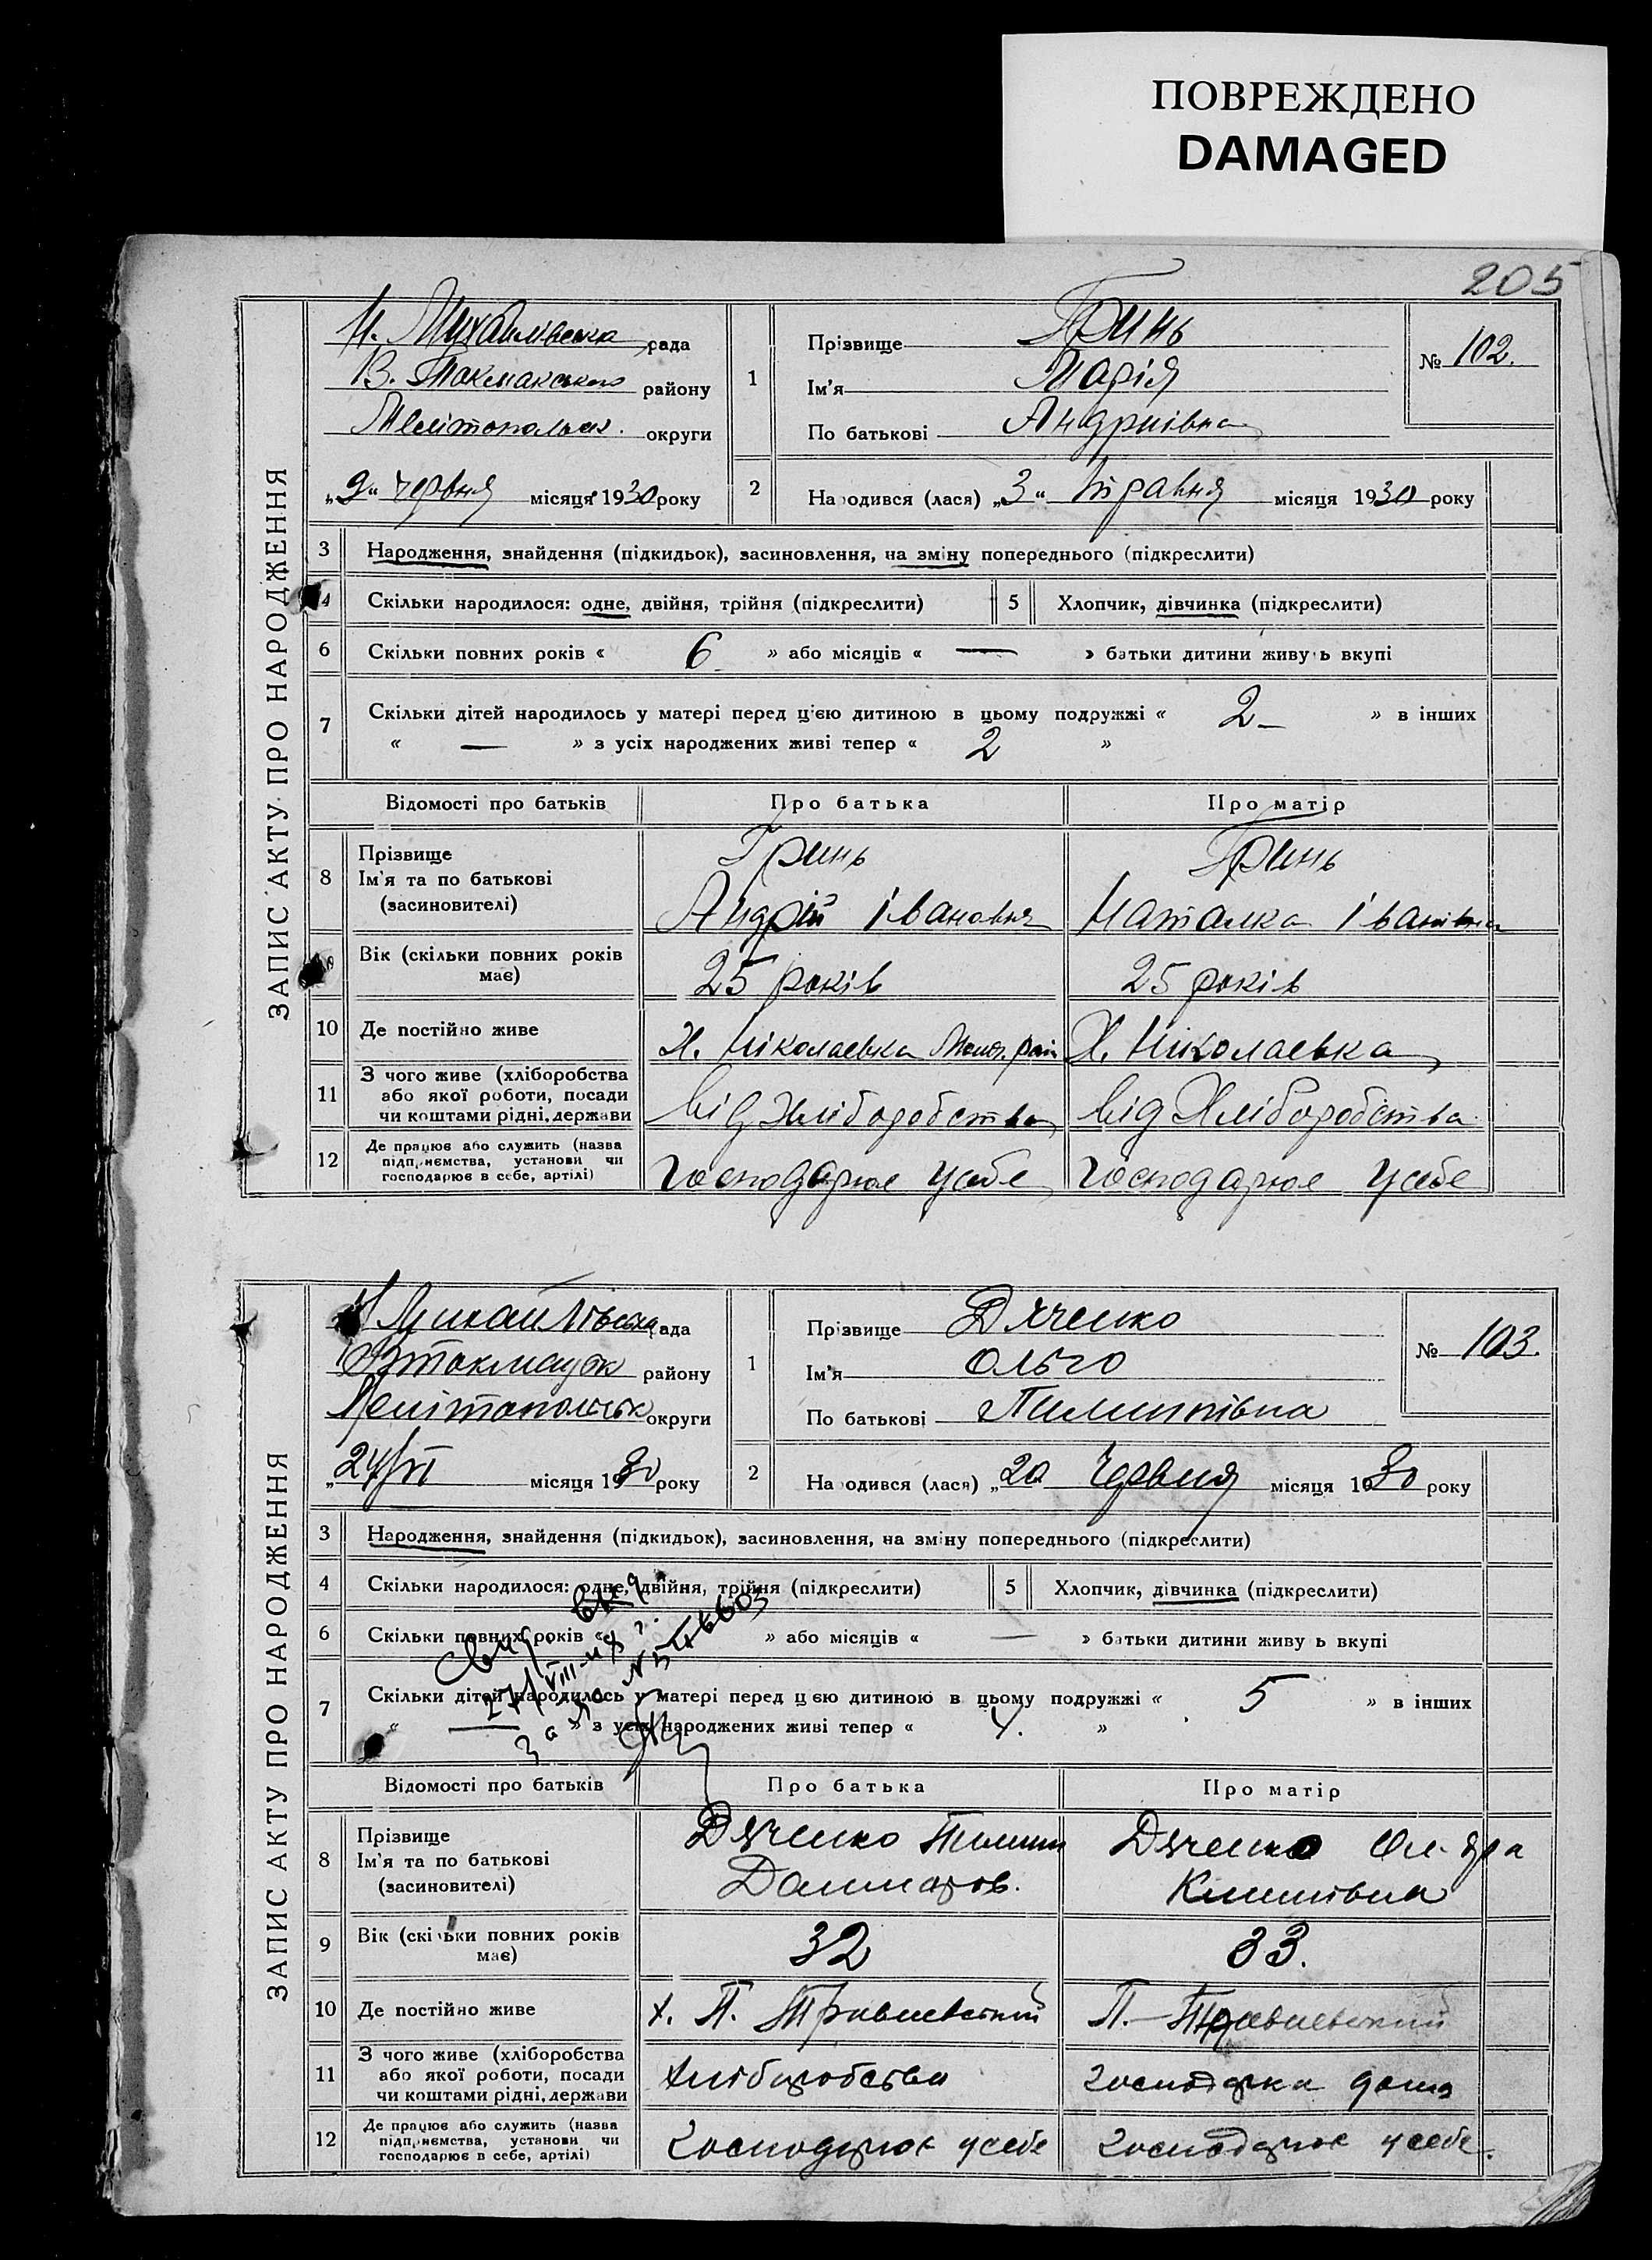 ПОВРЕЖДЕНО
DAMAGED
205
ЗАПИС АКТУ ПРО НАРОДЖЕННЯ
Н. Михайлівська рада
В. Токмакського району
Мелітопольск. округи
„9“ червня місяця 1930 року
1 Прізвище Гринь
Ім'я Марія
По батькові Андриівна
№ 102.
2 Народився (лася) „3“ травня місяця 1930 року
3 Народження, знайдення (підкидьок), засиновлення, на зміну попереднього (підкреслити)
4 Скільки народилося: одне, двійня, трійня (підкреслити) 5 Хлопчик, дівчинка (підкреслити)
6 Скільки повних років « 6 » або місяців « — » батьки дитини живуть вкупі
7 Скільки дітей народилось у матері перед цією дитиною в цьому подружжі « 2 – » в інших
« — » з усіх народжених живі тепер « 2 »
Відомості про батьків Про батька Про матір
8 Прізвище Ім'я та по батькові (засиновителі) Гринь Гринь
Андрій Іванович Наталка Іванівна
9 Вік (скільки повних років має) 25 років 25 років
10 Де постійно живе Х. Ніколаевка Х. Николаевка
11 З чого живе (хліборобства або якої роботи, посади чи коштами рідні, держави від Хліборобства від Хліборобства
12 Де працює або служить (назва підприємства, установи чи господарює в себе, артілі) Господарює у себе Господарює у себе
ЗАПИС АКТУ ПРО НАРОДЖЕННЯ
Михайлівська рада
Втокмацьк району
Мелітопольськ округи
„24/VI місяця 1930 року
1 Прізвище Дяченко
Ім'я Ольго
По батькові Пилипівна
№ 103.
2 Народився (лася) „20 Червня місяця 1930 року
3 Народження, знайдення (підкидьок), засиновлення, на зміну попереднього (підкреслити)
4 Скільки народилося: одне, двійня, трійня (підкреслити) 5 Хлопчик, дівчинка (підкреслити)
6 Скільки повних років « » або місяців « — » батьки дитини живуть вкупі
7 Скільки дітей народилось у матері перед цією дитиною в цьому подружжі « 5 » в інших
« — » з усіх народжених живі тепер « 4. »
Відомості про батьків Про батька Про матір
8 Прізвище Ім'я та по батькові (засиновителі) Дяченко Пилип Дяченко
Климівна
9 Вік (скільки повних років має) 32 33.
10 Де постійно живе х. П.
11 З чого живе (хліборобства або якої роботи, посади чи коштами рідні, держави хліборобства господарка дома
12 Де працює або служить (назва підприємства, установи чи господарює в себе, артілі) господарює у себе господарює у себе.